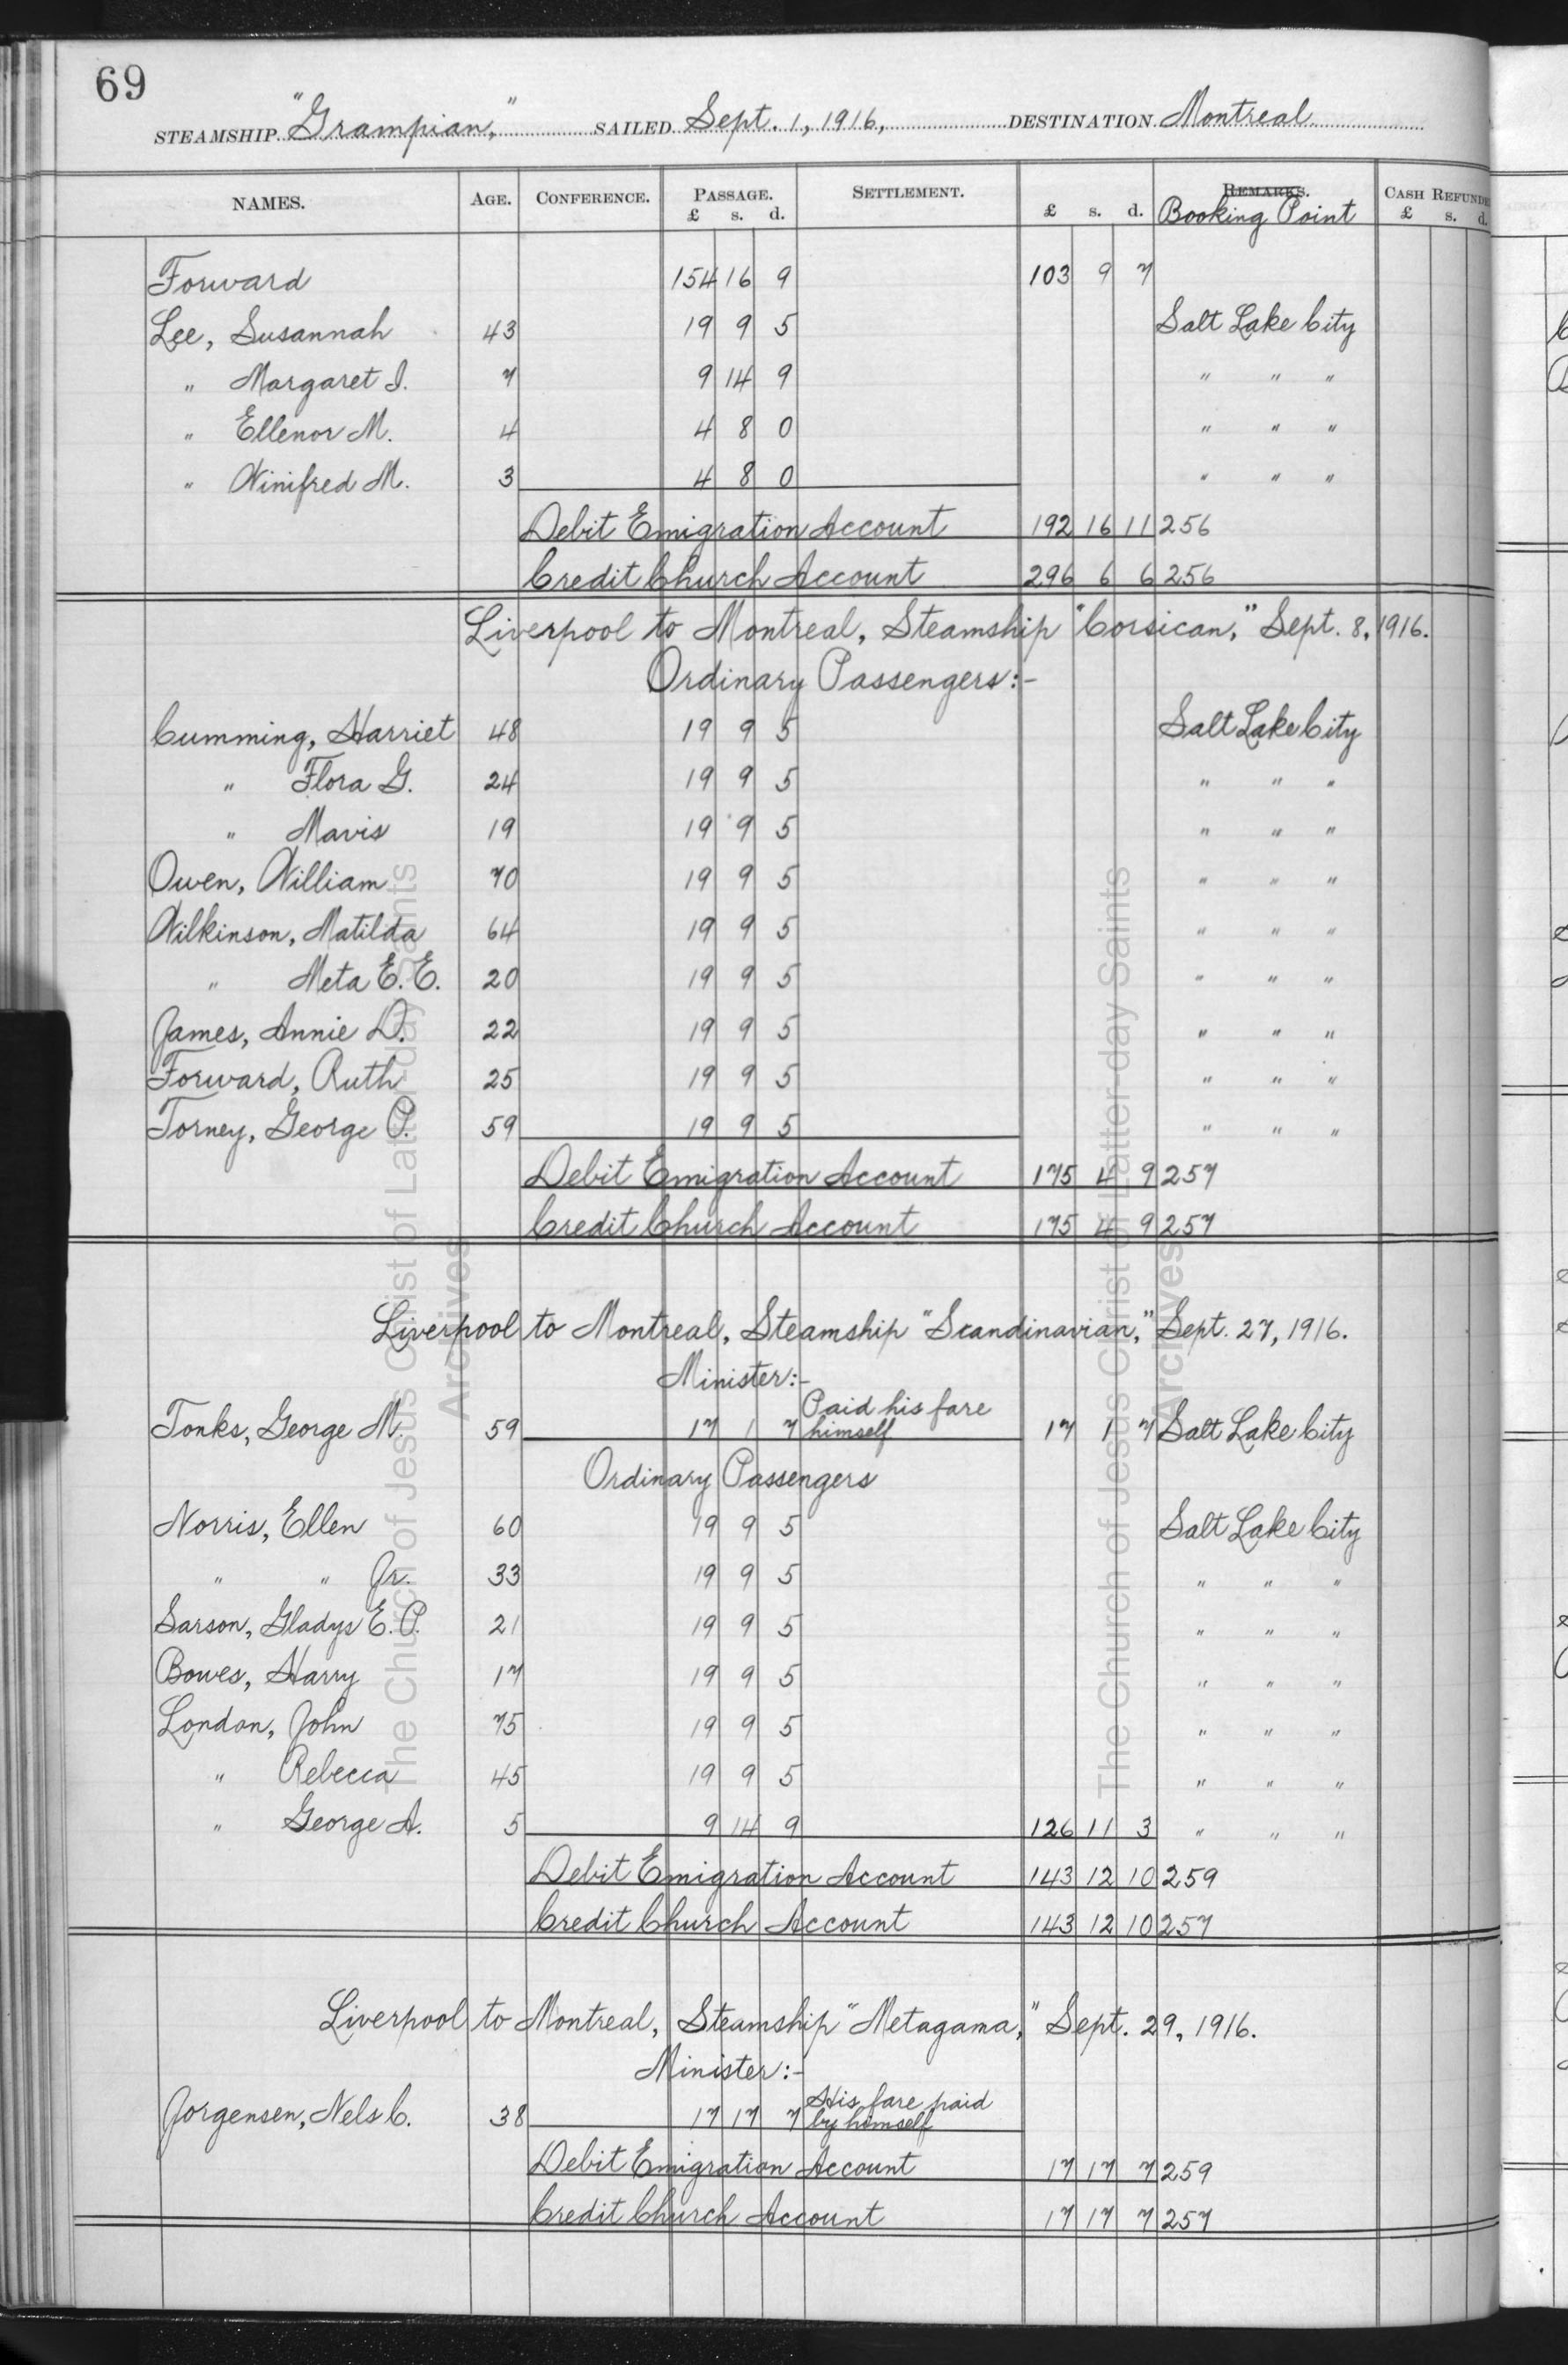 69
STEAMSHIP "Grampian," SAILED Sept. 1, 1916, DESTINATION Montreal
NAMES. AGE. CONFERENCE. PASSAGE. SETTLEMENT. REMARKS. CASH REFUNDE
£ s. d. £ s. d. Booking Point £ s. d.
Forward 154 16 9 103 9 7
Lee, Susannah 43 19 9 5 Salt Lake City
" Margaret I. 7 9 14 9 " " "
" Ellenor M. 4 4 8 0 " " "
" Winifred M. 3 4 8 0 " " "
Debit Emigration Account 192 16 11 256
Credit Church Account 296 6 6 256
Liverpool to Montreal, Steamship "Corsican," Sept. 8, 1916.
Ordinary Passengers:-
Cumming, Harriet 48 19 9 5 Salt Lake City
" Flora G. 24 19 9 5 " " "
" Mavis 19 19 9 5 " " "
Owen, William 70 19 9 5 " " "
Wilkinson, Matilda 64 19 9 5 " " "
" Meta E. E. 20 19 9 5 " " "
James, Annie D. 22 19 9 5 " " "
Forward, Ruth 25 19 9 5 " " "
Torney, George P. 59 19 9 5 " " "
Debit Emigration Account 175 4 9 257
Credit Church Account 175 4 9 257
Liverpool to Montreal, Steamship "Scandinavian," Sept. 27, 1916.
Minister:-
Paid his fare
Tonks, George M. 59 17 1 7 himself 17 1 7 Salt Lake City
Ordinary Passengers
Norris, Ellen 60 19 9 5 Salt Lake City
" " Jr. 33 19 9 5 " " "
Sarson, Gladys E. P. 21 19 9 5 " " "
Bowes, Harry 17 19 9 5 " " "
London, John 75 19 9 5 " " "
" Rebecca 45 19 9 5 " " "
" George A. 5 9 14 9 126 11 3 " " "
Debit Emigration Account 143 12 10 259
Credit Church Account 143 12 10 257
Liverpool to Montreal, Steamship "Metagama," Sept. 29, 1916.
Minister:-
His fare paid
Jorgensen, Nels C. 38 17 17 7 by himself
Debit Emigration Account 17 17 7 259
Credit Church Account 17 17 7 257
The Church of Jesus Christ of Latter-day Saints
Archives
The Church of Jesus Christ of Latter-day Saints
Archives